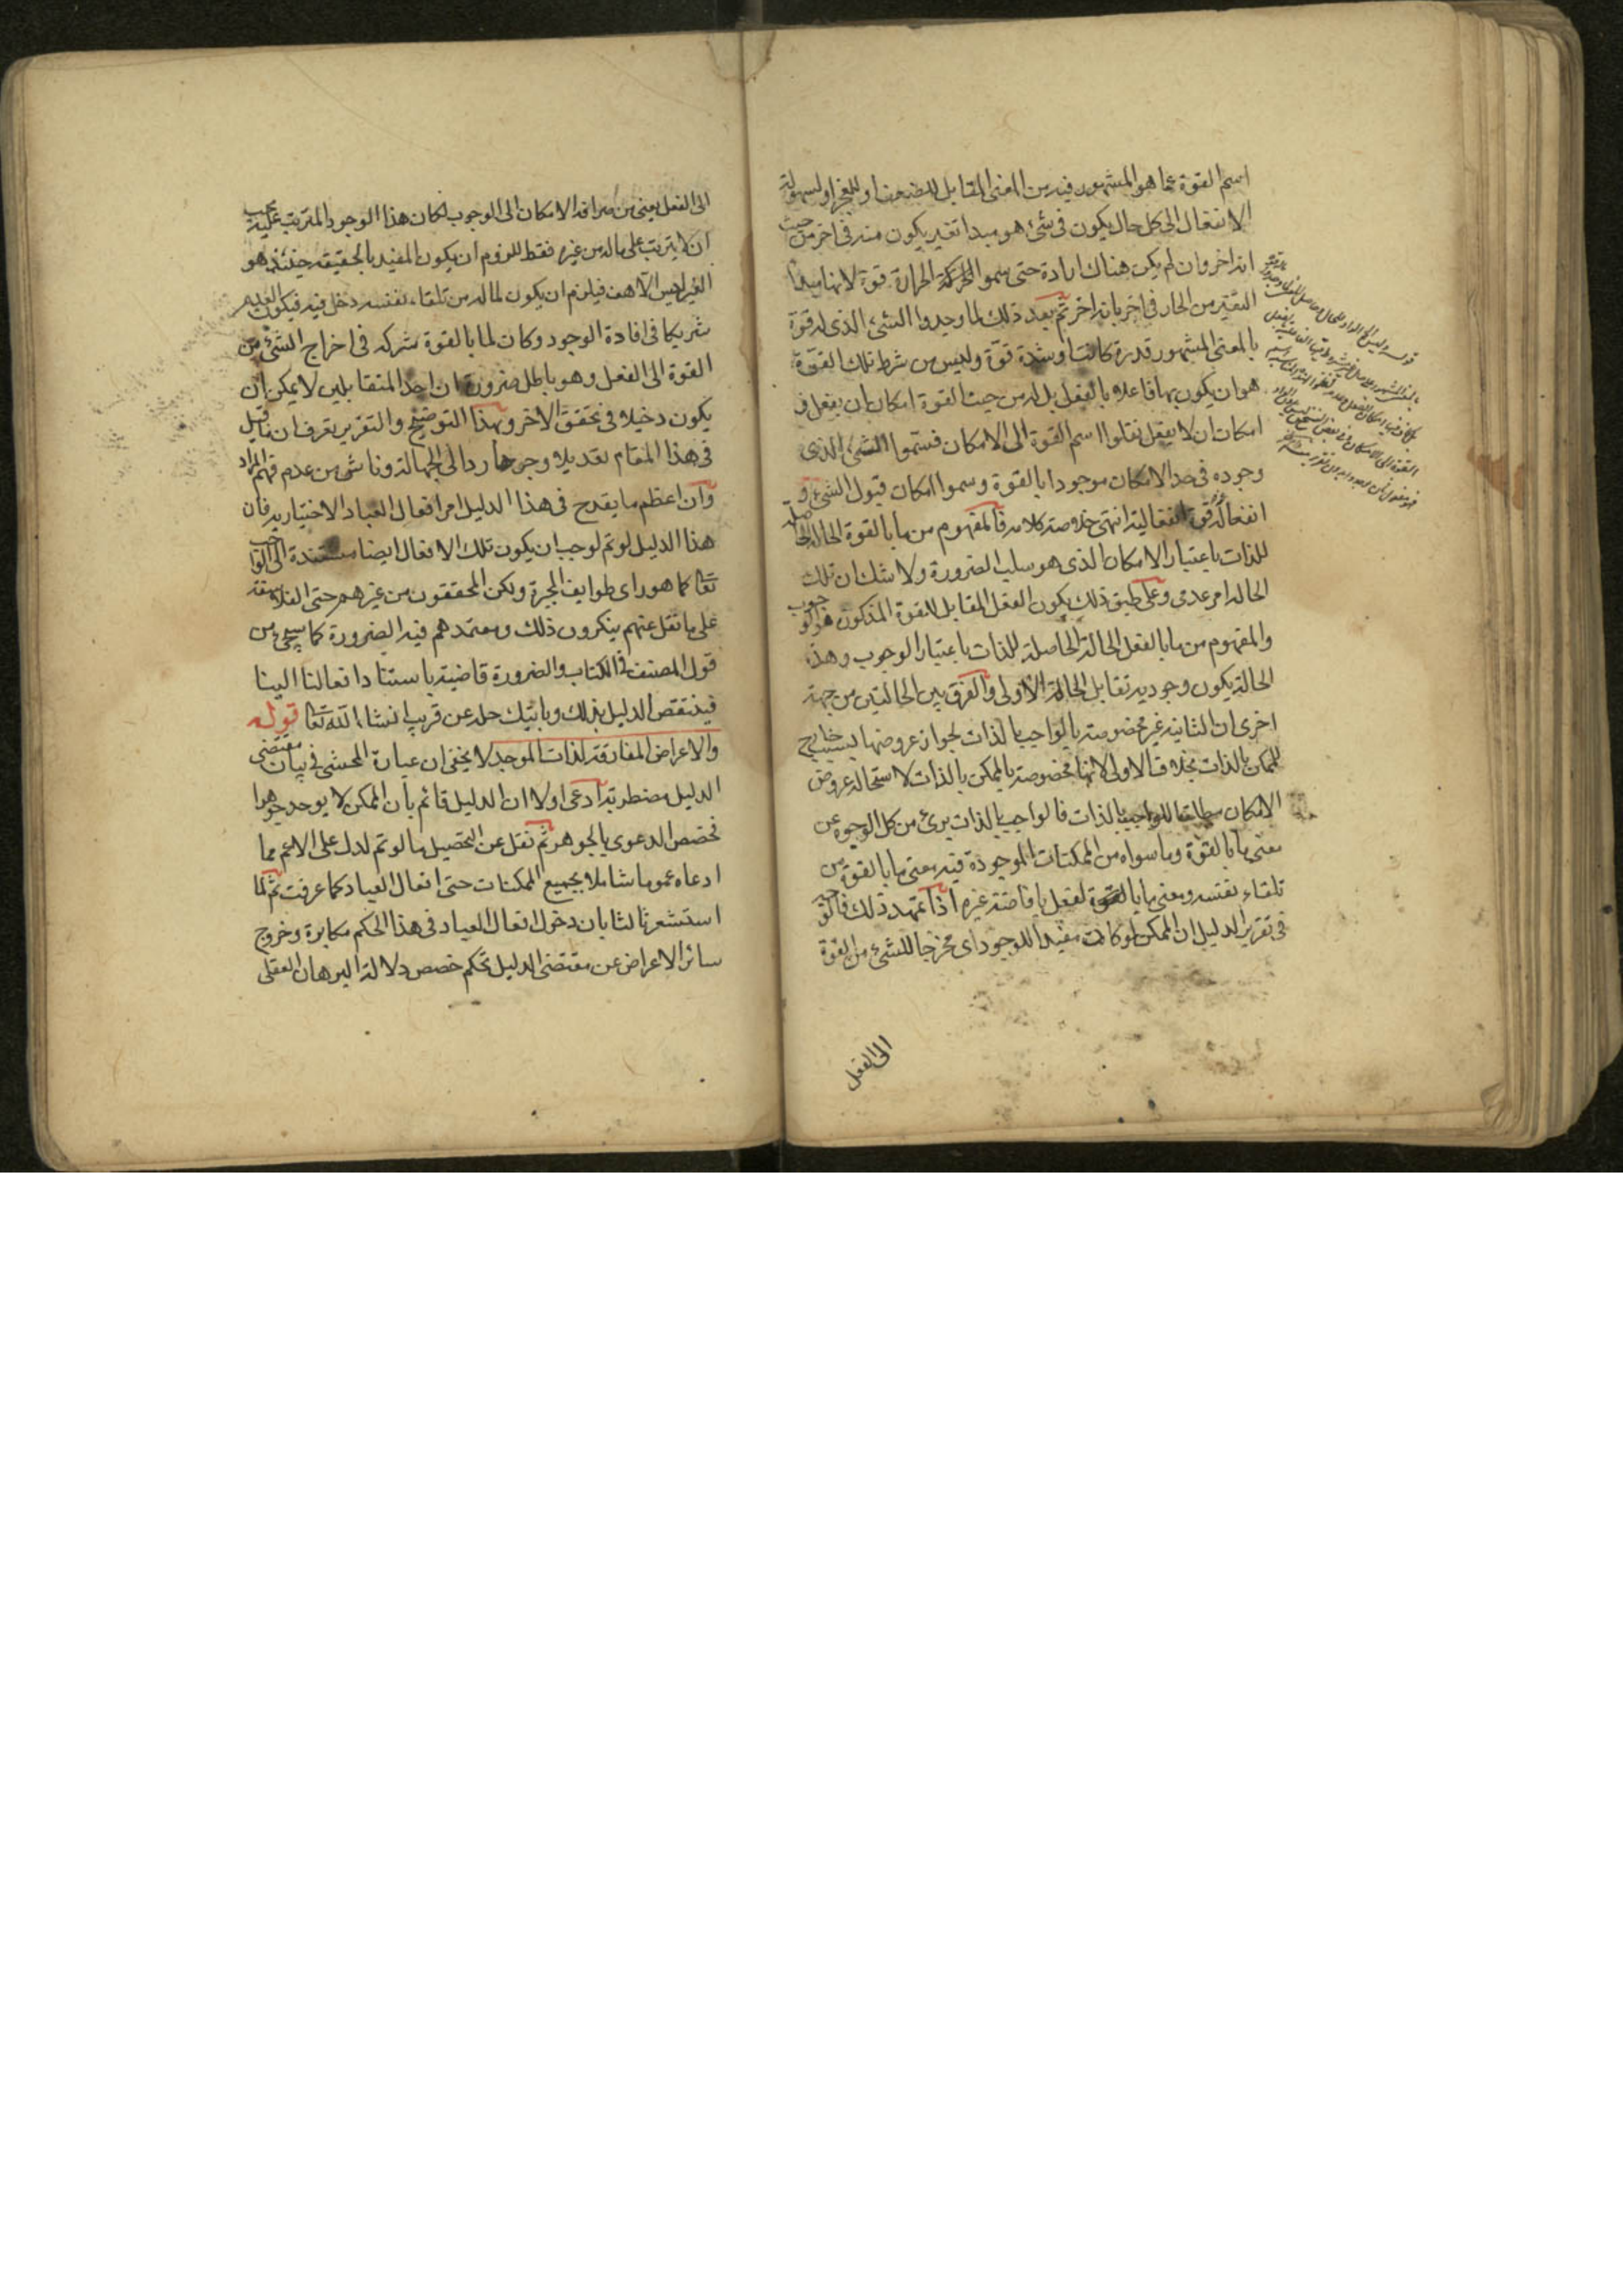 اسم القوة عما هو المشهور فيه من المعنى المقابل للضعف او للعجز او لسهولة
الانفعال الى كل حال يكون فى شئ هو مبدا تغير يكون منه فى اخر من حيث
انه اخر وان لم يكن هناك ارادة حتى سموا الحرارة قوة لانها مبدا
التغير من الحار فى اخر بانه اخر ثم بعد ذلك لما وجدوا الشئ الذى له قوة
بالمعنى المشهور قدرة كانت او شدة قوة وليس من شرط تلك القوة
هو ان يكون بها فاعلا بالفعل بل له من حيث القوة امكان ان يفعل و
امكان ان لا يفعل نقلوا اسم القوة الى الامكان فسموا الشئ الذى
وجوده فى حد الامكان موجودا بالقوة وسموا امكان قبول الشئ و
انفعاله قوة انفعالية انتهى خلاصة كلامه فالمفهوم من ما بالقوة الحالة الحاصلة
للذات باعتبار الامكان الذى هو سلب الضرورة ولا شك ان تلك
الحالة امر عدمى وعلى طبق ذلك يكون الفعل المقابل للقوة المذكورة هو الوجوب
والمفهوم من ما بالفعل الحالة الحاصلة للذات باعتبار الوجوب وهذه
الحالة يكون وجودية تقابل الحالة الاولى والفرق بين الحالتين من جهة
اخرى ان الثانية غير مخصوصة بالواجب بالذات لجواز عروضها بسبب خارج
للممكن بالذات بخلاف الاولى لانها مخصوصة بالممكن بالذات لاستحالة عروض
الامكان مطلقا للواجب بالذات فالواجب بالذات برئ من كل الوجوه عن
معنى ما بالقوة وما سواه من الممكنات الموجودة فيه معنى ما بالقوة من
تلقاء نفسه ومعنى ما بالفعل بافاضة غيره اذا تمهد ذلك فالقول
فى تقرير الدليل ان الممكن لو كانت مفيدا للوجود اى مخرجا للشئ من القوة
الى الفعل
الى الفعل يعنى من صرافة الامكان الى الوجوب لكان هذا الوجود المترتب عليه يجب
ان لا يترتب على ما له من غيره فقط للزوم ان يكون المفيد بالحقيقة حينئذ هو
الغير ليس الا هف فيلزم ان يكون لما له من تلقاء نفسه دخل فيه فيكون العدم
شريكا فى افادة الوجود وكان لما بالقوة شركة فى اخراج الشئ من
القوة الى الفعل وهو باطل ضرورة ان احد المتقابلين لا يمكن ان
يكون دخيلا فى تحقق الاخر وبهذا التوضيح والتقرير تعرف ان ما قيل
فى هذا المقام تعديلا وجرحا رد الى الجهالة وناشى من عدم فهم المراد
وان اعظم ما يقدح فى هذا الدليل امر افعال العباد الاختيارية فان
هذا الدليل لو تم لوجب ان يكون تلك الافعال ايضا مستندة الى الواجب
تعالى كما هو راى طوايف المجبرة ولكن المحققون من غيرهم حتى الفلاسفة
على ما نقل عنهم ينكرون ذلك ومعتمدهم فيه الضرورة كما سيجئ من
قول المصنف فى الكتاب والضرورة قاضية باستناد افعالنا الينا
فينتقض الدليل بذلك وياتيك حله عن قريب انشاء الله تعالى قوله
والاعراض المفارقة لذات الموجد لا يخفى ان عبارة المحشى فى بيان مقتضى
الدليل مضطربة ادعى اولا ان الدليل قائم بان الممكن لا يوجد جوهرا
فخصص الدعوى بالجوهر ثم نقل عن التحصيل ما لو تم لدل على الاعم مما
ادعاه عموما شاملا بجميع الممكنات حتى افعال العباد كما عرفت ثم لما
استشعر ثالثا بان دخول افعال العباد فى هذا الحكم مكابرة وخروج
سائر الاعراض عن مقتضى الدليل تحكم خصص دلالة البرهان العقلى